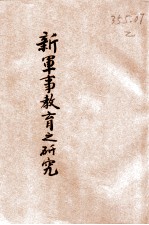 355.07
之
新軍事教育之研究